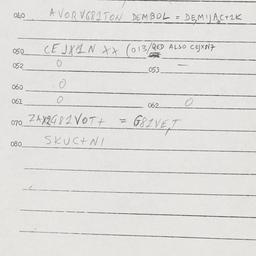 040 AVORVG81TON DEMBOL = DEMIJAC+2K
050 CEJX1N XX (013/ ALSO CEJXN7
052 0 053 —
060 0
061 0 062 0
070 = G81VE,T
080 SKUC+N1